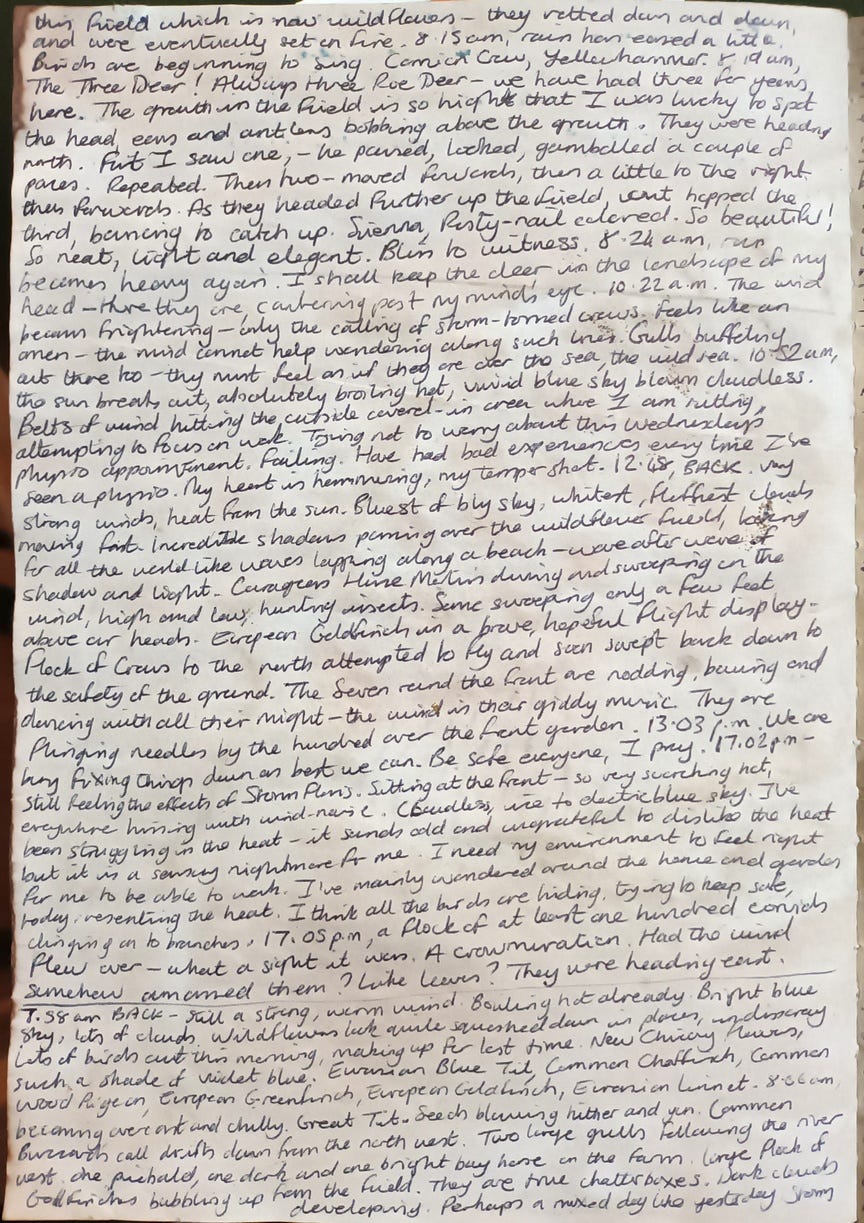 this field which is now wildflowers – they rotted down and down,
and were eventually set on fire. 8.15am, rain has eased a little.
Birds are beginning to sing. Carrion Crow, Yellowhammer. 8.19am,
The Three Deer! Always three Roe Deer – we have had three for years
here. The growth in the field is so high that I was lucky to spot
the head, ears and antlers bobbing above the growth. They were heading
north. First I saw one, – he paused, looked, gambolled a couple of
paces. Repeated. Then two – moved forwards, then a little to the right
then forwards. As they headed further up the field, out hopped the
third, bouncing to catch up. Sienna, Rusty-nail colored. So beautiful!
So neat, light and elegant. Bliss to witness. 8.24am, rain
becomes heavy again. I shall keep the deer in the landscape of my
head – there they are, cantering past my minds eye. 10.22a.m. The wind
became frightening – only the calling of storm-tossed crows. Feels like an
omen – the mind cannot help wandering along such lines. Gulls buffeting
out there too – they must feel as if they are over the sea, the wild sea. 10.52am,
the sun breaks out, absolutely broiling hot, vivid blue sky blown cloudless.
Belts of wind hitting the outside covered-in area where I am sitting,
attempting to focus on work. Trying not to worry about this Wednesdays
physio appointment. Failing. Have had bad experiences every time I've
seen a physio. My heart is hammering, my temper shot. 12.48, BACK. Very
strong winds, heat from the sun. Bluest of bly sky, whitest, fluffiest clouds
moving fast. Incredible shadows passing over the wildflower field, looking
for all the world like waves lapping along a beach – wave after wave of
shadow and light. Courageous House Martins diving and swooping on the
wind, high and low, hunting insects. Some swooping only a few feet
above our heads. European Goldfinch in a brave, hopeful flight display.
Flock of Crows to the north attempted to fly and soon swept back down to
the safety of the ground. The Seven round the front are nodding, bowing and
dancing with all their might – the wind is their giddy music. They are
flinging needles by the hundred over the front garden. 13.03p.m. We are
busy fixing things down as best we can. Be safe everyone, I pray. 17.02pm –
still feeling the effects of Storm Floris. Sitting at the front – so very scorching hot,
everywhere hissing with wind-noise. Cloudless, ice to electric blue sky. I've
been struggling in the heat – it sounds odd and ungrateful to dislike the heat
but it is a sensory nightmare for me. I need my environment to feel right
for me to be able to work. I've mainly wandered around the house and garden
today, resenting the heat. I think all the birds are hiding, trying to keep safe,
clinging on to branches. 17.05pm, a flock of at least one hundred corvids
flew over – what a sight it was. A crownuration. Had the wind
somehow amassed them? Like leaves? They were heading east.
7.58am BACK – still a strong, warm wind. Boiling hot already. Bright blue
sky, lots of clouds. Wildflowers look quite squashed down in places, in disarray
Lots of birds out this morning, making up for lost time. New Chicory flowers,
such a shade of violet blue. Eurasian Blue Tit, Common Chaffinch, Common
Wood Pigeon, European Greenfinch, European Goldfinch, Eurasian Linnet. 8.06am,
becoming overcast and chilly. Great Tit. Seeds blowing hither and yon. Common
Buzzards call drifts down from the north west. Two large gulls following the river
west. One piebald, one dark and one bright bay horse on the farm. Large flock of
Goldfinches bubbling up from the field. They are true chatterboxes. Dark clouds
developing. Perhaps a mixed day like yesterday Storms